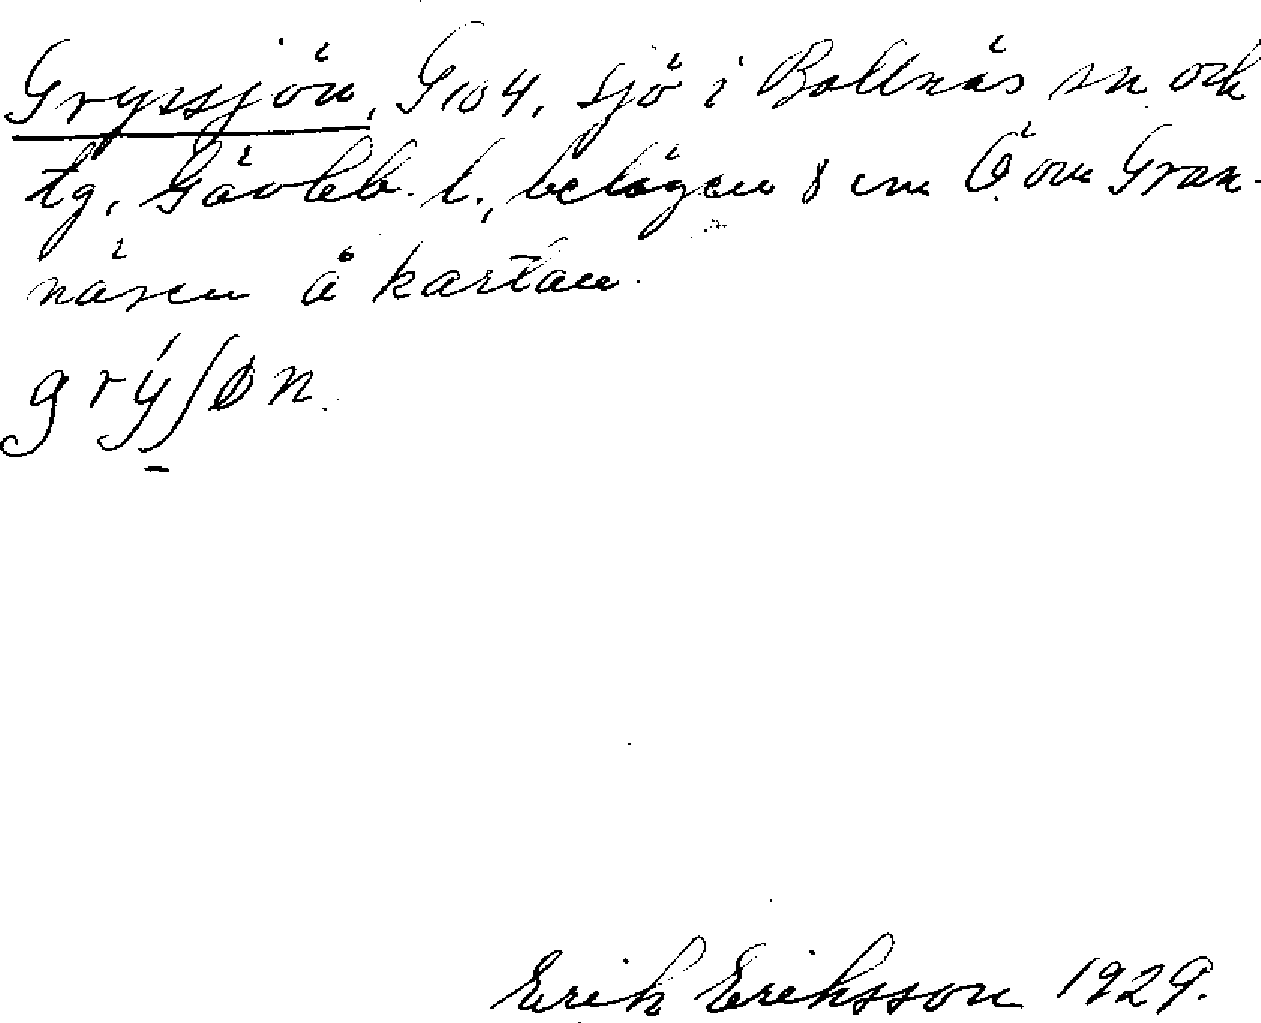 Gryssjön, G 104, sjö i Bollnäs sn och
tg, Gävleb. l., belägen 8 cm Ö om Gran-
näsen å kartan.
grýʃøn.
Erik Eriksson 1929.